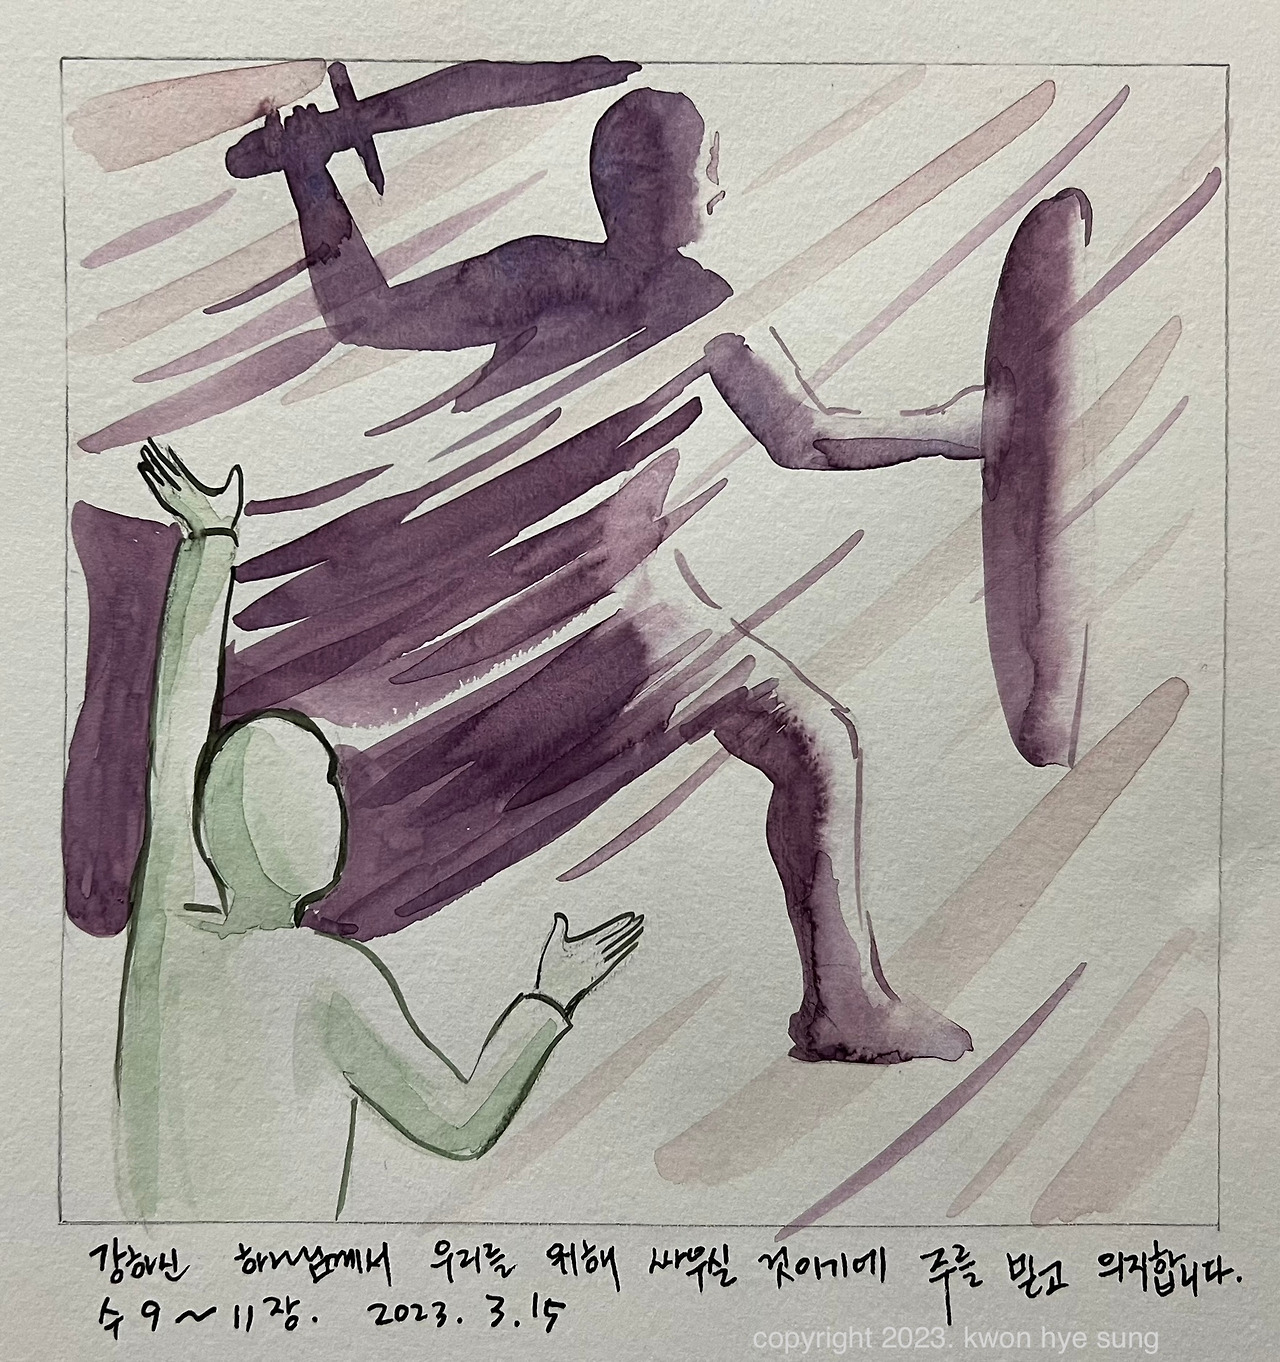 강하신 하나님께서 우리를 위해 싸우실 것이기에 주를 믿고 의지합니다.
수 9 ~ 11 장. 2023. 3. 15
copyright 2023. kwon hye sung